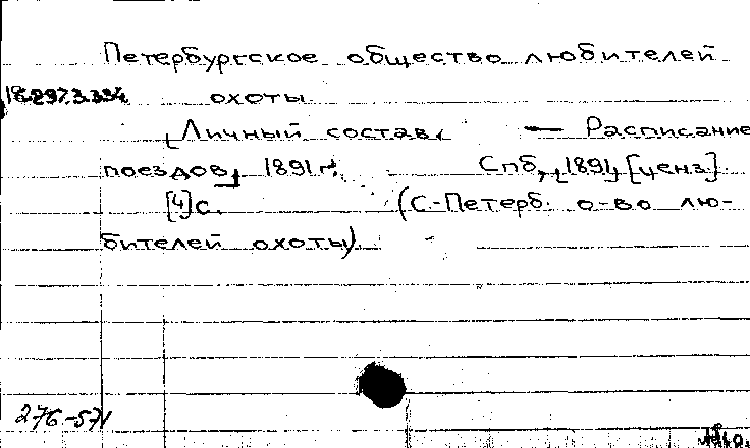 Петербургское общество любителей
18.297.3.334 охоты.
[Личный состав. — Расписание
поездов], 1891 г. Спб, [1891, [ценз].
[4]с. (С.-Петерб. о-во лю-
бителей охоты).
276-571